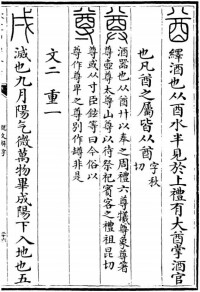 酋 繹酒也从酉水半見於上禮有大酋掌酒官
也凡酋之屬皆从酋 字秋切
尊 酒器也从酋廾以奉之周禮六尊犧尊象尊著
尊壺尊太尊山尊以待祭祀賓客之禮祖昆切
尊 尊或从寸臣鉉等曰今俗以
尊作尊卑之尊別作罇非是
文二 重一
戌 滅也九月陽气微萬物畢成陽下入地也五